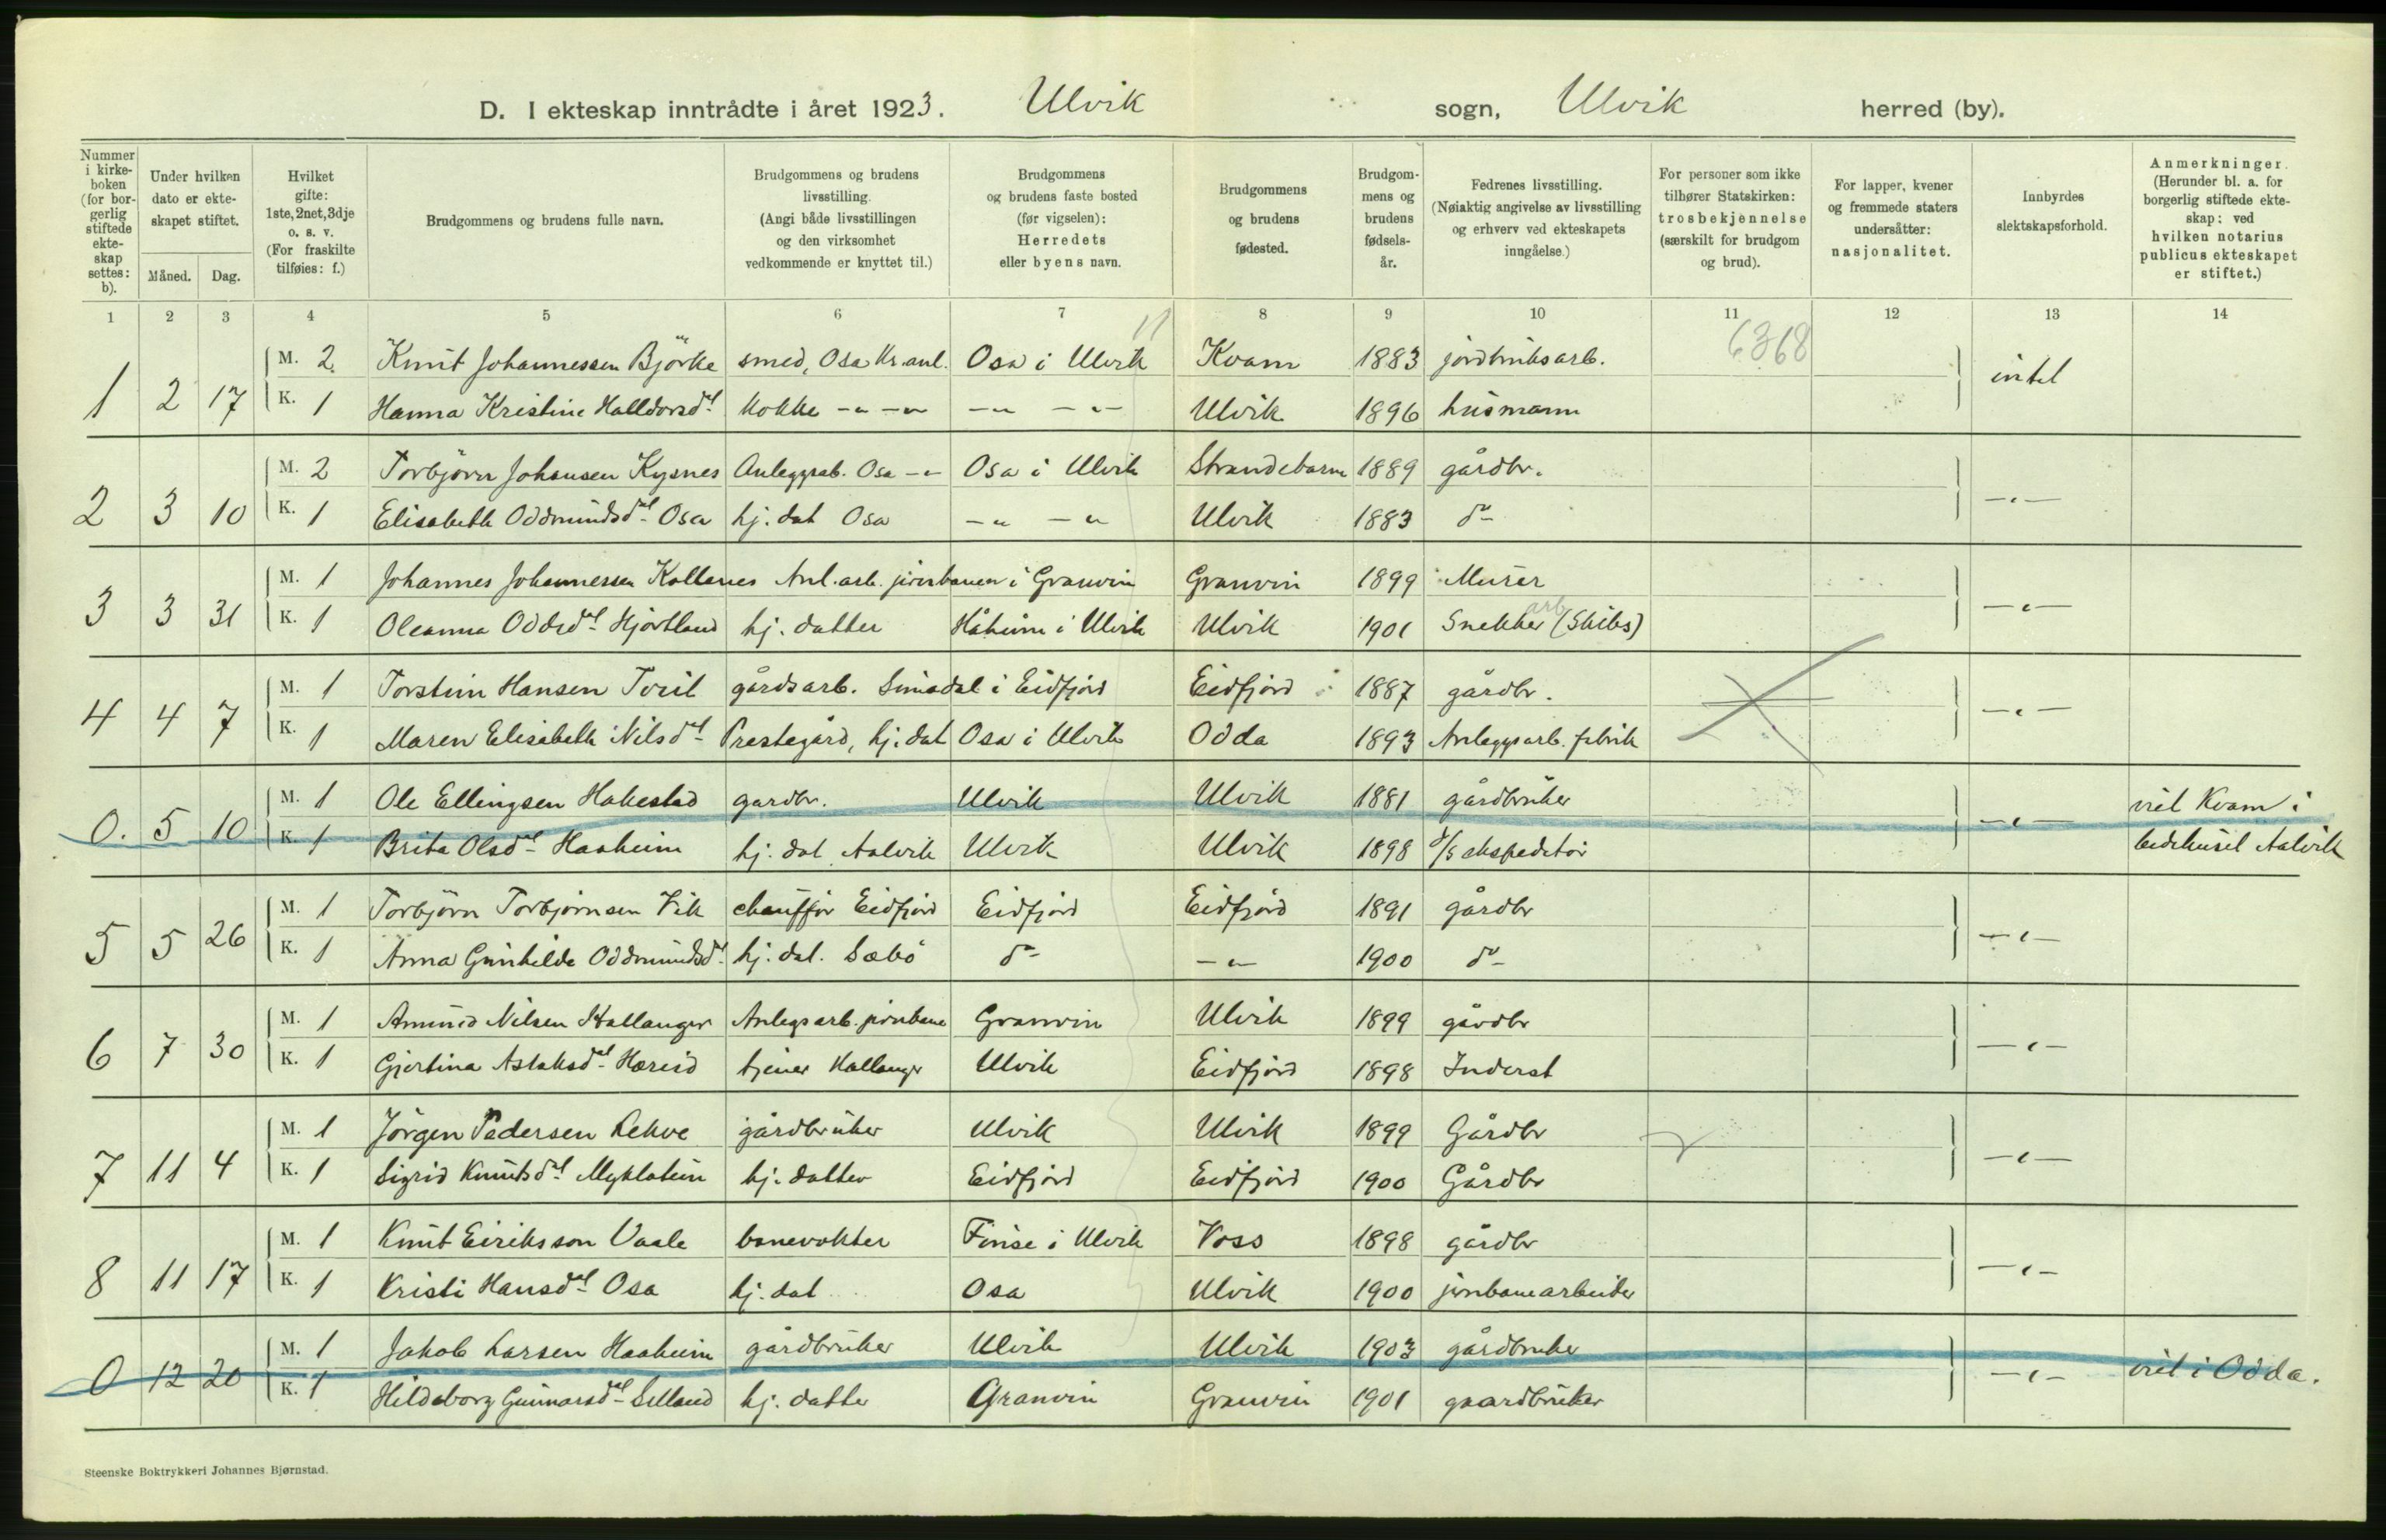 D. I ekteskap inntrådte i året 1923. Ulvik sogn, Ulvik herred (by).
Nummer i kirkeboken (for borgerlig stiftede ekteskap settes: b).
Under hvilken dato er ekteskapet stiftet.
Måned. Dag.
Hvilket gifte: 1ste, 2net, 3dje o. s. v. (For fraskilte tilføies: f.)
Brudgommens og brudens fulle navn.
Brudgommens og brudens livsstilling. (Angi både livsstillingen og den virksomhet vedkommende er knyttet til.)
Brudgommens og brudens faste bosted (før vigselen): Herredets eller byens navn.
Brudgommens og brudens fødested.
Brudgommens og brudens fødselsår.
Fedrenes livsstilling. (Nøiaktig angivelse av livsstilling og erhverv ved ekteskapets inngåelse.)
For personer som ikke tilhører Statskirken: trosbekjennelse (særskilt for brudgom og brud).
For lapper, kvener og fremmede staters undersåtter: nasjonalitet.
Innbyrdes slektskapsforhold.
Anmerkninger. (Herunder bl. a. for borgerlig stiftede ekteskap: ved hvilken notarius publicus ekteskapet er stiftet.)
1 2 3 4 5 6 7 8 9 10 11 12 13 14
11 6368
1 2 17 M. 2 Knut Johannessen Björke smed, Osa Kr.anl. Osa i Ulvik Kvam 1883 jordbruksarb. intet
K. 1 Hanna Kristine Halldorsdt kokke -"- -"- -"- -"- Ulvik 1896 husmann
2 3 10 M. 2 Torbjörn Johansen Kysnes Anleggsab. Osa -"- Osa i Ulvik Strandebarm 1889 gårdbr. -"-
K. 1 Elisabeth Oddmundsdt Osa hj. dat Osa -"- -"- Ulvik 1883 do
3 3 31 M. 1 Johannes Johannessen Kollanes Anl.arb. jernbanen i Granvin Granvin 1899 Murer -"-
K. 1 Oleanna Oddsdt Hjörtland hj. datter Håheim i Ulvik Ulvik 1901 Snekker arb (Skibs)
4 4 7 M. 1 Torstein Hansen Tveit gårdsarb. Simadal i Eidfjord Eidfjord 1887 gårdbr. -"-
K. 1 Maren Elisabeth Nilsdt Prestegård, hj. dat Osa i Ulvik Odda 1893 Anleggsarb. fabrik
0. 5 10 M. 1 Ole Ellingsen Hakestad gardbr. Ulvik Ulvik 1881 gårdbruker -"- viet Kvam i
K. 1 Brita Olsdt Haaheim hj. dat Aalvik Ulvik Ulvik 1898 d/s ekspeditør bedehuset Aalvik
5 5 26 M. 1 Torbjörn Torbjörnsen Vik chauffør Eidfjord Eidfjord Eidfjord 1891 gårdbr -"-
K. 1 Anna Gunhilda Oddmundsdt hj. dat. Sæbö do -"- 1900 do
6 7 30 M. 1 Amund Nilsen Hallanger Anlegsarb. jernbane Granvin Ulvik 1899 gårdbr -"-
K. 1 Gjertina Aslaksdt Hæreid tjener Hallanger Ulvik Eidfjord 1898 Inderst
7 11 4 M. 1 Jörgen Pedersen Lekve gårdbruker Ulvik Ulvik 1899 Gårdbr -"-
K. 1 Sigrid Knutsdt Myklatun hj. datter Eidfjord Eidfjord 1900 Gårdbr
8 11 17 M. 1 Knut Eiriksson Vaale banevokter Finse i Ulvik Voss 1898 gårdbr -"-
K. 1 Kristi Hansdt Osa hj. dat Osa Ulvik 1900 jernbanearbeider
0 12 20 M. 1 Jakob Larsen Haaheim gårdbruker Ulvik Ulvik 1903 gårdbruker -"- viet i Odda.
K. 1 Hildeborg Gunnarsdt Selland hj. datter Granvin Granvin 1901 gaardbruker
Steenske Boktrykkeri Johannes Bjørnstad.